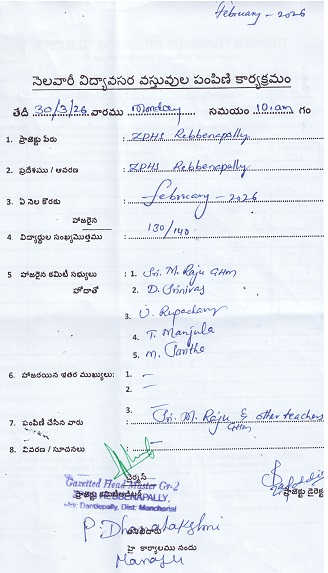 February - 2026
నెలవారీ విద్యావసర వస్తువుల పంపిణి కార్యక్రమం
తేదీ 30/3/26 వారము Monday సమయం 10.am గం
1. ప్రాజెక్టు పేరు : ZPHS Rebbenapally
2. ప్రదేశము / ఆవరణ : ZPHS Rebbenapally
3. ఏ నెల కొరకు : February - 2026
హాజరైన
4. విద్యార్థుల సంఖ్య/మొత్తము : 130/140
5 హాజరైన కమిటి సభ్యులు : 1. Sri. M. Raju GHM
హోదాతో 2. D. Srinivas
3. U. Rupachary
4. T. Manjula
5. M. Saritha
6. హాజరయిన ఇతర ముఖ్యులు: 1. -
2. -
3.
7. పంపిణి చేసిన వారు : Sri. M. Raju & other teachers
GHM
8. వివరణ / సూచనలు :
Gazetted Head Master Gr-2
REBBENAPALLY,
Dandepally, Dist: Mancherial
ప్రాజెక్టు డైరెక్ట
P. Dhanalakshmi
హై కార్యాలము నందు